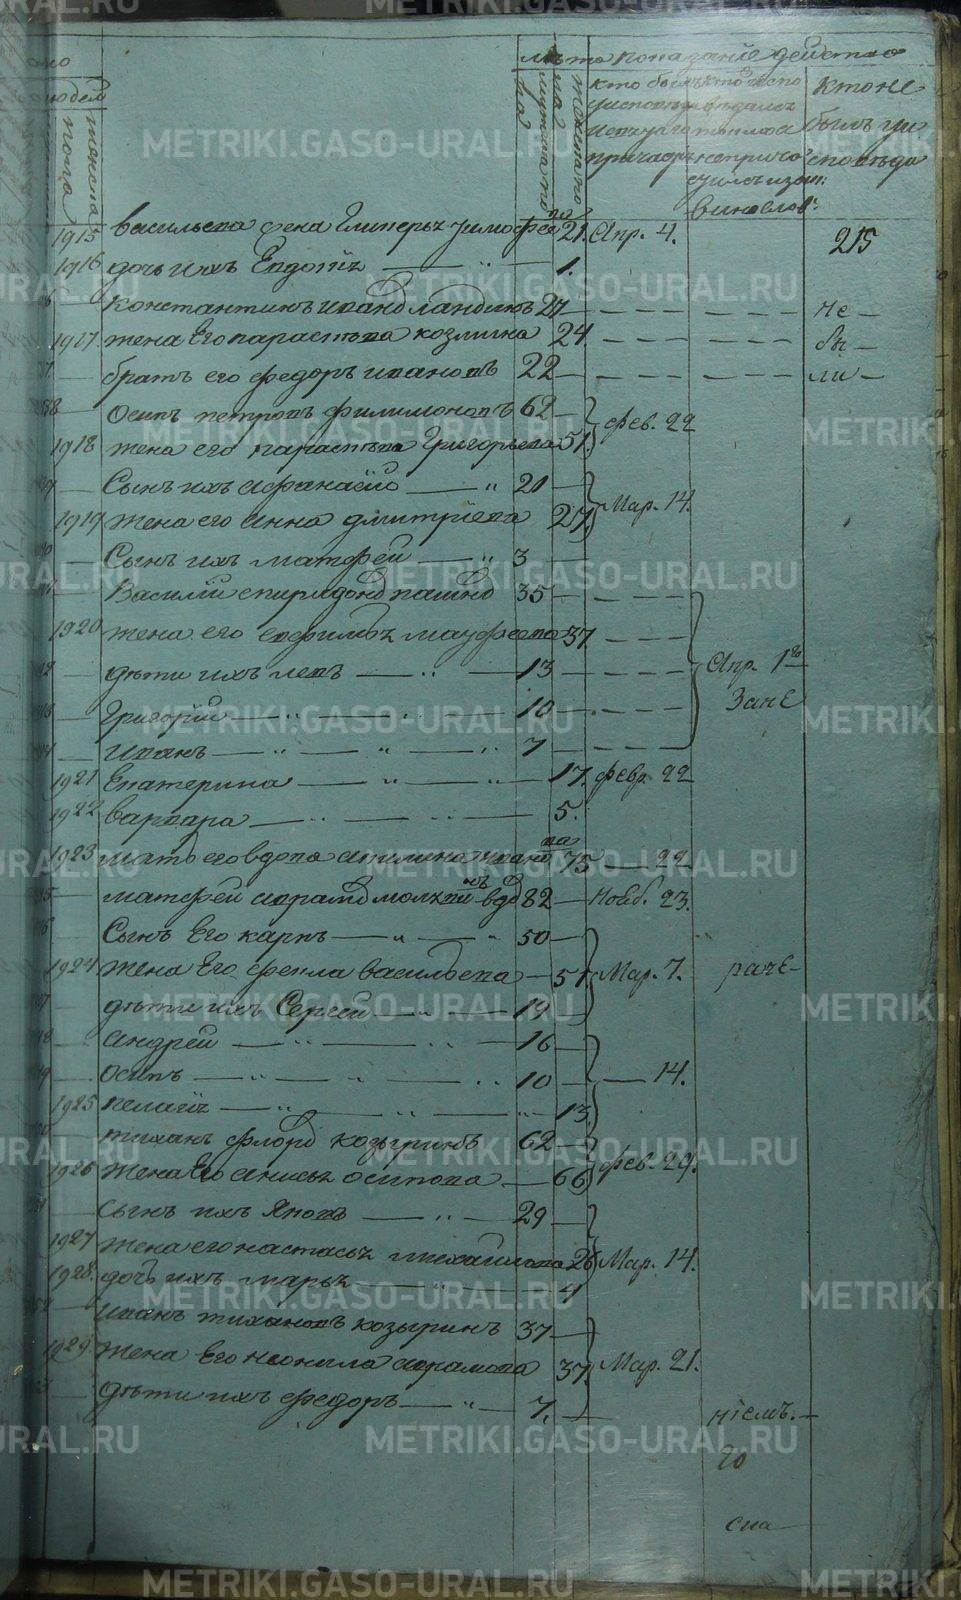 лѣта показание действо
людем
мужеска
женска
кто былъ у исповѣди и святаго причастія
кто исповѣдался токмо а не причастился
винослов.
кто не былъ у исповѣди
1915 васильева жена Гликерья тимофеева 21. Апр. 4. 215
1916 дочь ихъ Евдокія 1.
Константинъ иванов 27 не
1917 жена Его парасковья козмина 24 бы
братъ его федоръ ивановъ 22 ли
Осипъ петровъ филимоновъ 62 фев. 22
1918 жена его парасковья Григорьева 51.
Сынъ ихъ Афанасий 20 Мар. 14.
1919 жена его анна дмитриева 27
Сынъ ихъ матфей 3
Василий спиридонов 35
1920 жена его 37
дѣти ихъ левъ 13 Апр. 1го
Григорий 10 Зане
Иванъ 7
1921 Екатерина 17. февр. 22
1922 варвара 5.
1923 мать его вдова акилина иванова 75 22
матфей аврамов вдо 82 Нояб. 23.
Сынъ Его карпъ 50
1924 жена Его фекла васильева 51 Мар. 7. раче
дѣти ихъ Сергей 19
андрей 16
осипъ 10 14.
1925 пелагія 13
тихан флоров козыринъ 62
1926 жена Его анисья осипова 66 фев. 29.
сынъ ихъ яковъ 29
1927 жена его настасья михаилова 26 Мар. 14.
1928. дочь ихъ марья 4
иванъ тихановъ козыринъ 37
1929. жена Его неонила аврамова 37. Мар. 21.
дѣти ихъ федоръ 7. ніемъ.
20
сна
METRIKI.GASO-URAL.RU